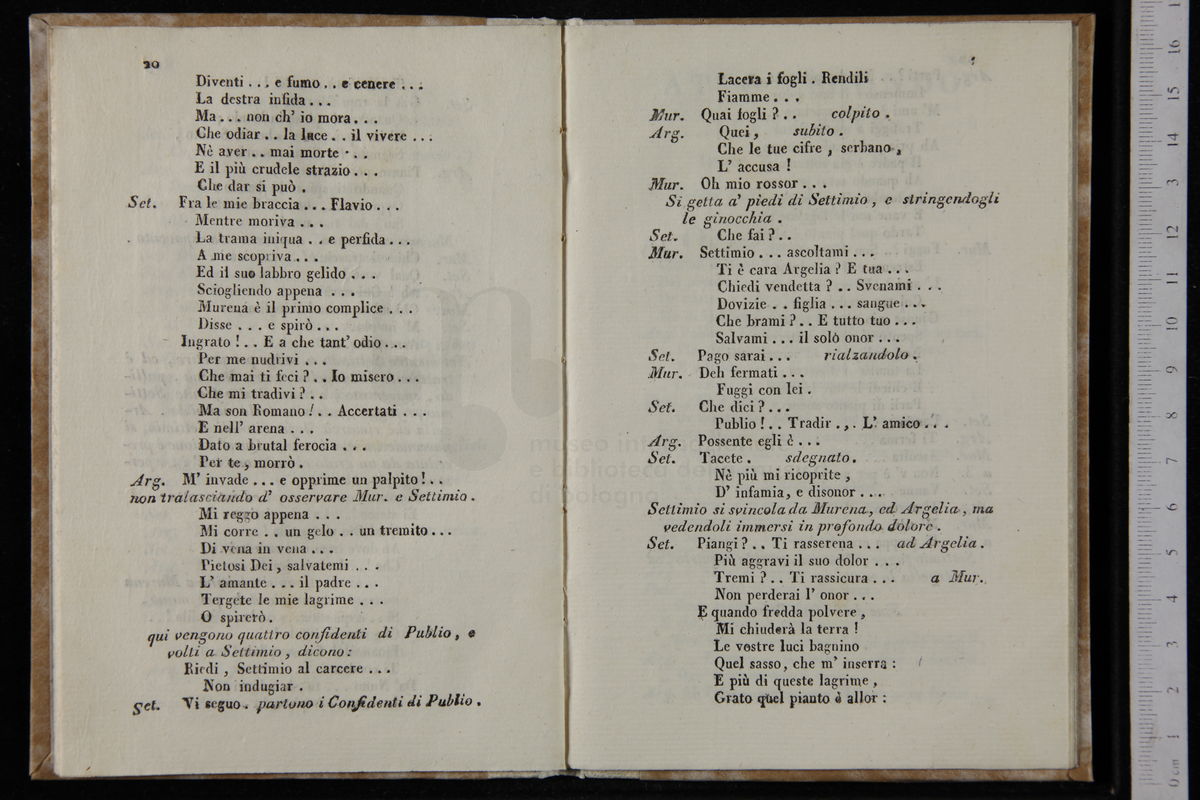 20
Diventi . . . e fumo . . e cenere . . .
La destra infida . . .
Ma . . . non ch' io mora . . .
Che odiar . . la luce . . il vivere . . .
Nè aver . . mai morte . . .
E il più crudele strazio . . .
Che dar si può .
Set. Fra le mie braccia . . . Flavio . . .
Mentre moriva . . .
La trama iniqua . . e perfida . . .
A me scopriva . . .
Ed il suo labbro gelido . . .
Sciogliendo appena . . .
Murena è il primo complice . . .
Disse . . . e spirò . . .
Ingrato ! . . E a che tant' odio . . .
Per me nudrivi . . .
Che mai ti feci ? . . Io misero . . .
Che mi tradivi ? . .
Ma son Romano ! . . Accertati . . .
E nell' arena . . .
Dato a brutal ferocia . . .
Per te , morrò .
Arg. M' invade . . . e opprime un palpito ! . .
non tralasciando d' osservare Mur. e Settimio .
Mi reggo appena . . .
Mi corre . . un gelo . . un tremito . . .
Di vena in vena . . .
Pietosi Dei , salvatemi . . .
L' amante . . . il padre . . .
Tergete le mie lagrime . . .
O spirerò .
qui vengono quattro confidenti di Publio , e
volti a Settimio , dicono :
Riedi , Settimio al carcere . . .
Non indugiar .
Set. Vi seguo . partono i Confidenti di Publio .
Lacera i fogli . Rendili
Fiamme . . .
Mur. Quai fogli ? . . colpito .
Arg. Quei , subito .
Che le tue cifre , serbano ,
L' accusa !
Mur. Oh mio rossor . . .
Si getta a' piedi di Settimio , e stringendogli
le ginocchia .
Set. Che fai ? . .
Mur. Settimio . . . ascoltami . . .
Ti è cara Argelia ? E tua . . .
Chiedi vendetta ? . . Svenami . . .
Dovizie . . figlia . . . sangue . . .
Che brami ? . . E tutto tuo . . .
Salvami . . . il solò onor . . .
Set. Pago sarai . . . rialzandolo .
Mur. Deh fermati . . .
Fuggi con lei .
Set. Che dici ? . . .
Publio ! . . Tradir . , . L' amico . . .
Arg. Possente egli è . . .
Set. Tacete . sdegnato .
Nè più mi ricoprite ,
D' infamia, e disonor . . .
Settimio si svincola da Murena, ed Argelia , ma
vedendoli immersi in profondo dolore .
Set. Piangi ? . . Ti rasserena . . . ad Argelia .
Più aggravi il suo dolor . . .
Tremi ? . . Ti rassicura . . . a Mur.
Non perderai l' onor . . .
E quando fredda polvere ,
Mi chiuderà la terra !
Le vostre luci bagnino
Quel sasso, che m' inserra :
E più di queste lagrime ,
Grato quel pianto è allor :